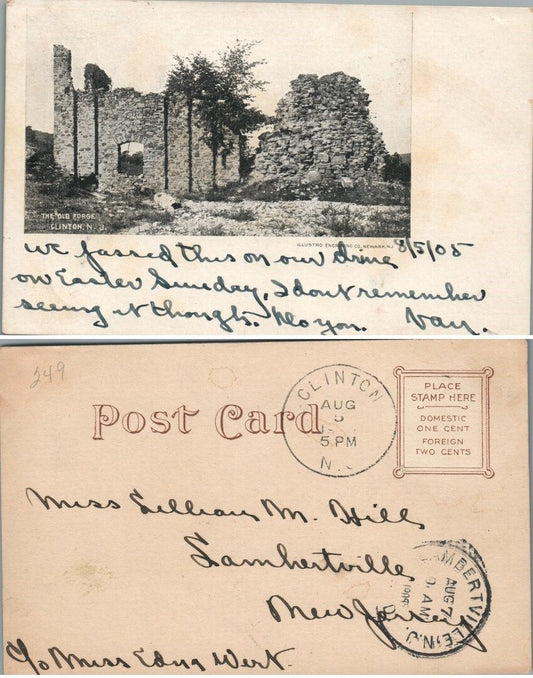 THE OLD FORGE
CLINTON, N. J.
ILLUSTRO ENGRAVING CO. NEWARK, N.J.
8/5/05
We passed this on our drive
on Easter Sunday, I don't remember
seeing it though. Do you. Van.
249
Post Card
CLINTON
AUG
5
5 PM
N.J.
PLACE
STAMP HERE
DOMESTIC
ONE CENT
FOREIGN
TWO CENTS
Miss Lillian M. Hill
Lambertville
New Jersey
C/o Miss Edna Wert.
LAMBERTVILLE, N.J.
AUG 7
AM